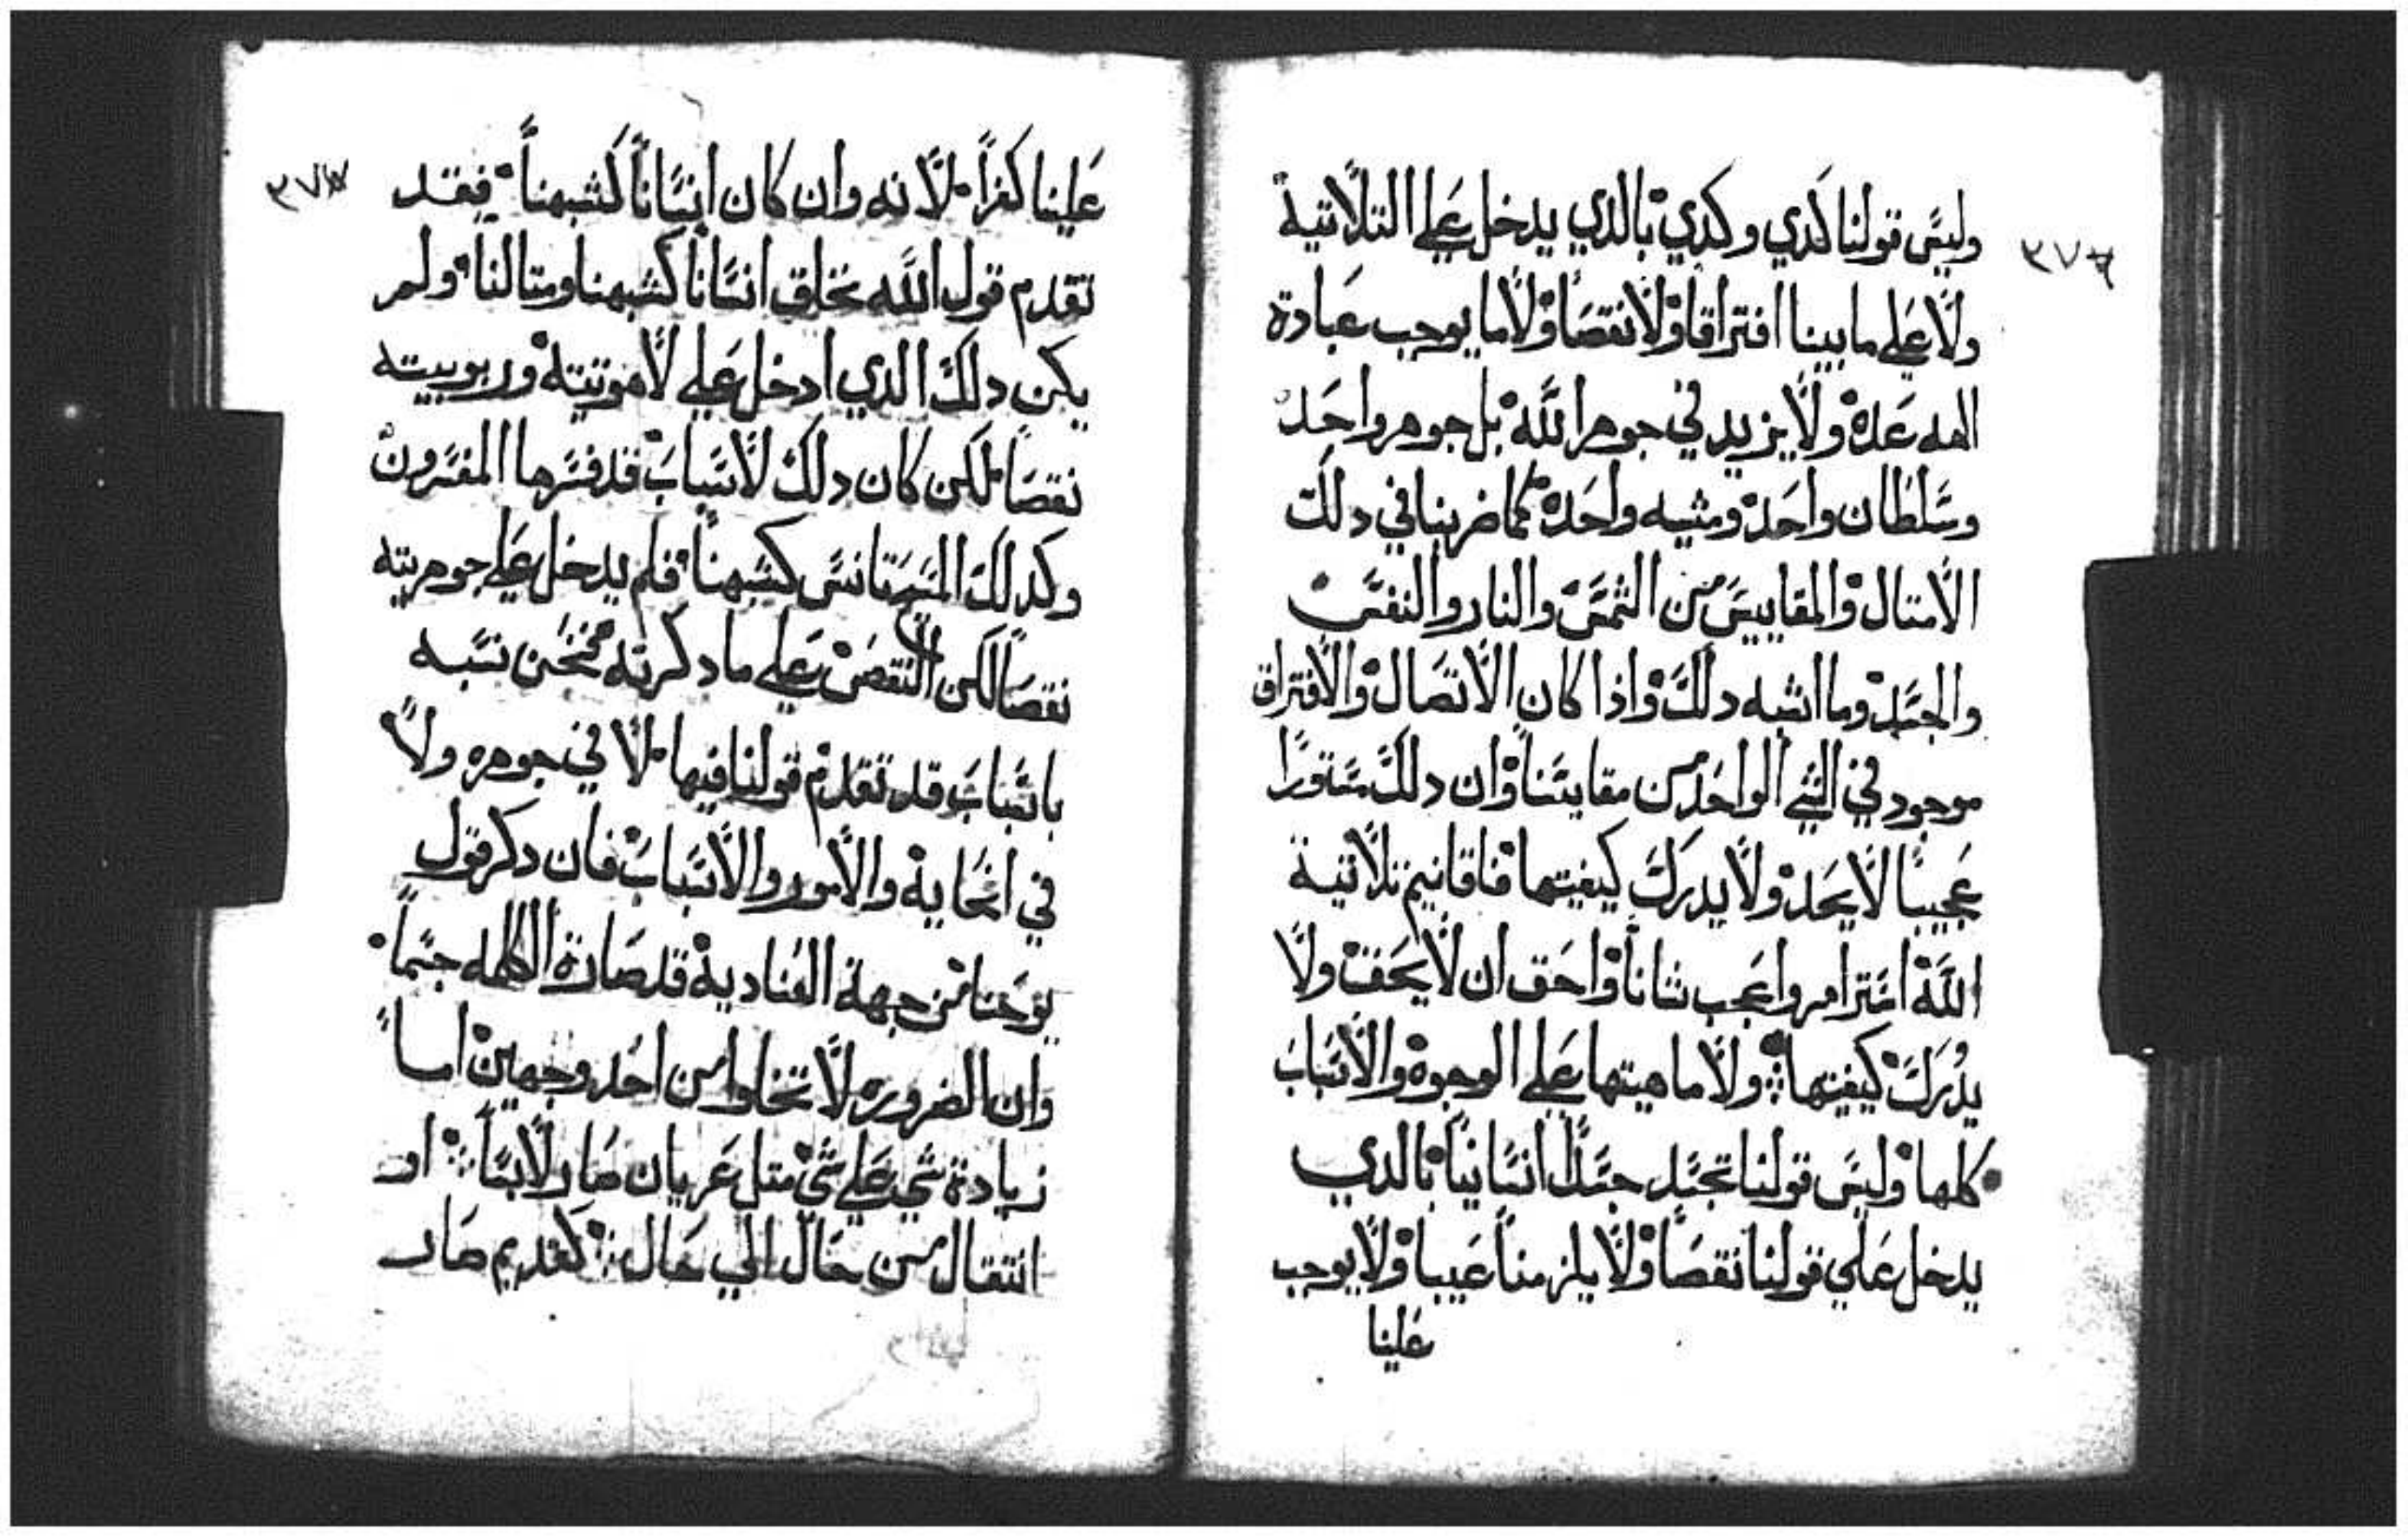 وليس قولنا كدي وكدي بالدي يدخل علي التلاتية
ولا علي ما بيننا افتراقا ولا نقصا ولا ما يوجب عبادة
الهه عدة ولا يزيد في جوهر الله بل جوهر واحد
وسلطان واحد ومشيه واحدة كما ضربنا في دلك
الامتال والمقاييس من الشمس والنار والنفس
والجسد وما اشبه دلك واذا كان الاتصال والافتراق
موجود في الشي الواحد من مقايستنا وان دلك مستورا
عجيبا لا يحد ولا يدرك كيفيتها فاقانيم تلاتية
الله استر امر واعجب شانا واحق ان لا يحقت ولا
يدرك كيفيتها ولا ماهيتها علي الوجوه والاسباب
كلها وليس قولنا تجسد جسدا انسانيا بالدي
يدخل علي قولنا نقصا ولا يلزمنا عيبا ولا يوجب
علينا
٣٧٧
علينا كفرا لانه وان كان انسانا كشبهنا فقد
تقدم قول الله نخلق انسانا كشبهنا ومتالنا ولم
يكن دلك الدي ادخل علي لاهوتيته وربوبيته
نقصا لكن كان دلك لاسباب قد فسرها المفسرون
وكدلك المسيح تانس كشبهنا فلم يدخل علي جوهريته
نقصا لكن النقص علي ما دكرته فنحن نسبه
باسباب قد تقدم قولنا فيها لا في جوهره ولا
في انحايه والامور والاسباب فان دكر قول
يوحنا من جهة العنادية قد صارة الكلمه جسما
وان الضروره لا تخلوا من احد وجهين اما
زيادة شي علي شي متل عريان صار لابسا او
انتقال من حال الي حال كعديم صار